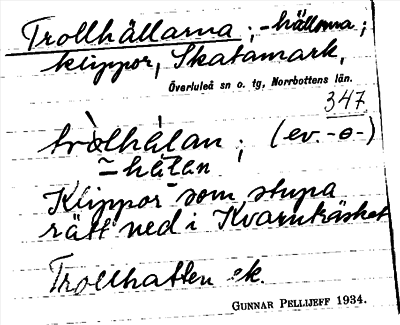 Trollhällarna; -hällorna;
klippor, Skatamark,
Överluleå sn o. tg, Norrbottens län.
347
tròlhä̀lan; (ev. -o-)
-hälan
Klippor som stupa
rätt ned i Kvarnträsket
Trollhatten ek.
GUNNAR PELLIJEFF 1934.